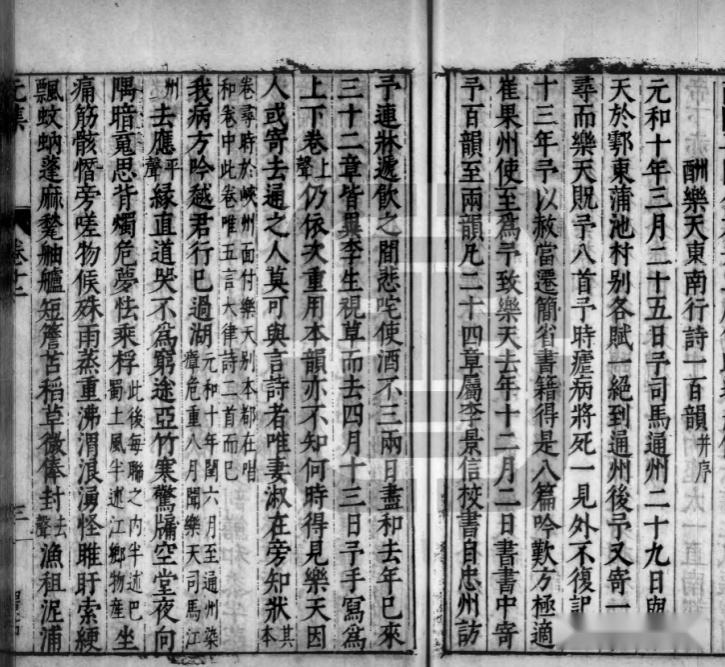 酬樂天東南行詩一百韻并序
元和十年三月二十五日予司馬通州二十九日與
天於鄠東蒲池村别各賦一絕到通州後予又寄一
尋而樂天貺予八首予時瘧病將死一見外不復記
十三年予以赦當遷簡省書籍得是八篇吟歎方極適
崔果州使至爲予致樂天去年十二月二日書書中寄
予百韻至兩韻凡二十四章屬李景信校書自忠州訪
予連牀遞飲之間悲咤使酒不三兩日盡和去年已來
三十二章皆畢李生視草而去四月十三日予手寫爲
上下卷上聲仍依次重用本韻亦不知何時得見樂天因
人或寄去通之人莫可與言詩者唯妻淑在旁知狀其本
卷尋時於峽州面付樂天别本都在唱
和卷中此卷唯五言大律詩二首而已
我病方吟越君行已過湖元和十年閏六月至通州染
瘴危重八月聞樂天司馬江
州去應平聲緣直道哭不爲窮途亞竹寒驚牖空堂夜向
隅暗䰟思背燭危夢怯乘桴此後每聯之内半述巴
蜀土風半述江鄉物産坐
痛筋骸憯旁嗟物候殊雨蒸重沸渭浪湧怪睢盱索綆
飄蚊蚋蓬麻甃舳艫短簷苫稻草微俸封去聲漁租泥浦
元集
卷十二